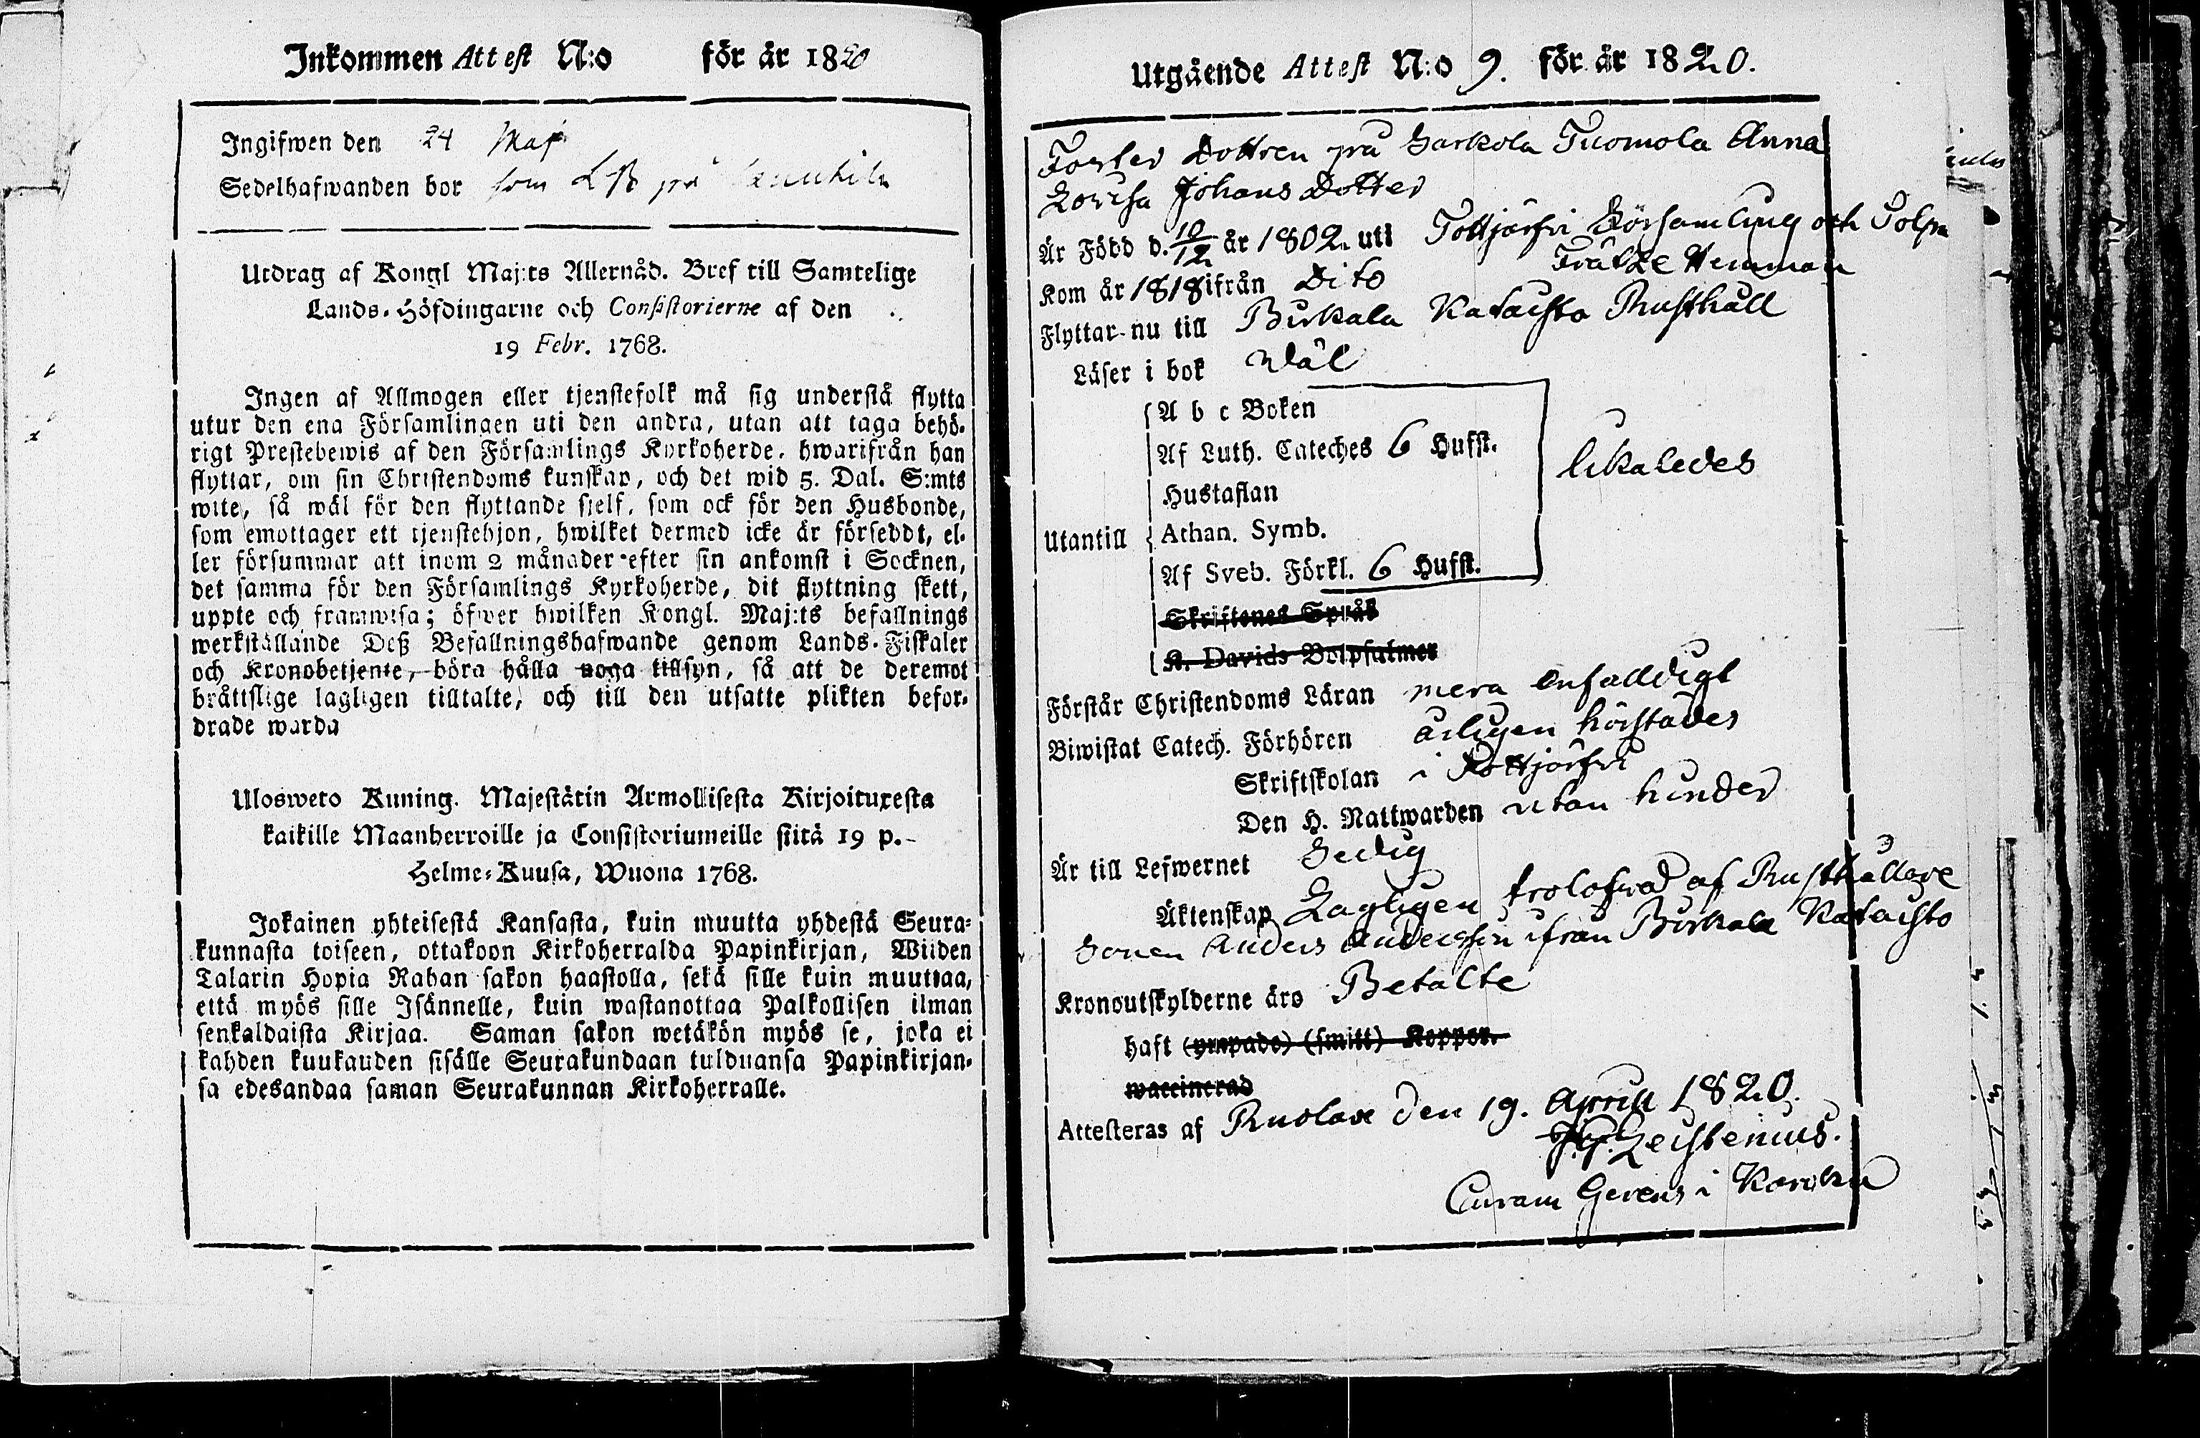 Inkommen Attest N:o för år 1820
Ingifwen den 24 Maji
Sedelhafwanden bor som LB på
Utdrag af Kongl Maj:ts Allernåd. Bref till Samtelige
Lands-Höfdingarne och Consistorierne af den
19 Febr. 1768.
Ingen af Allmogen eller tjenstefolk må sig understå flytta
utur den ena Församlingen uti den andra, utan att taga behö-
rigt Prestebewis af den Församlings Kyrkoherde, hwarifrån han
flyttar, om sin Christendoms kunskap, och det wid 5. Dal. S:mts
wite, så wäl för den flyttande sjelf, som ock för den Husbonde,
som emottager ett tjenstehjon, hwilket dermed icke är förseddt, el-
ler försummar att inom 2 månader efter sin ankomst i Socknen,
det samma för den Församlings Kyrkoherde, dit flyttning skett,
uppte och framwisa; öfwer hwilken Kongl. Maj:ts befallnings
werkställande Deß Befallningshafwande genom Lands-Fiskaler
och Kronobetjente, böra hålla noga tillsyn, så att de deremot
bråttslige lagligen tilltalte, och till den utsatte plikten befor-
drade warda
Ulosweto Kuning. Majestätin Armollisesta Kirjoituxesta
kaikille Maanherroille ja Consistoriumeille siitä 19 p.
Helme-Kuusa, Wuona 1768.
Jokainen yhteisestä Kansasta, kuin muutta yhdestä Seura-
kunnasta toiseen, ottakoon Kirkoherralda Papinkirjan, Wiiden
Talarin Hopia Rahan sakon haastolla, sekä sille kuin muuttaa,
että myös sille Isännelle, kuin wastanottaa Palkollisen ilman
senkaldaista Kirjaa. Saman sakon wetäkön myös se, joka ei
kahden kuukauden sisälle Seurakundaan tulduansa Papinkirjan-
sa edesandaa saman Seurakunnan Kirkoherralle.
Utgående Attest N:o 9. för år 1820.
Foster Dottren på Sarkola Tuomola Anna
Lovisa Johans Dotter
Är Född d. 10/12 år 1802 uti Tottjärfvi Församling och
Frälse Hemman
Kom år 1818 ifrån Dito
Flyttar nu till Birkala Kataisto Rusthåll
Läser i bok wäl
A b c Boken
Af Luth. Cateches 6 Hufst.
likaledes
Hustaflan
Utantill Athan. Symb.
Af Sveb. Förkl. 6 Hufst.
Skriftenes Språk
K. Davids Botpsalmer
Förstår Christendoms Läran mera enfalldigt
Biwistat Catech. Förhören årligen härstädes
Skriftskolan i Tottjärfvi
Den H. Nattwarden utan hinder
Är till Lefwernet Sedig
Äktenskap Lagligen trolofvad af Rusthållare
Sonen Anders Andersson ifrån Birkala Kataisto
Kronoutskylderne äro Betalte
haft (ympade) (smitt) Koppor.
waccinerad
Attesteras af Ruolax den 19. April 1820.
Zeistenius.
Curam Gerens i Karkku